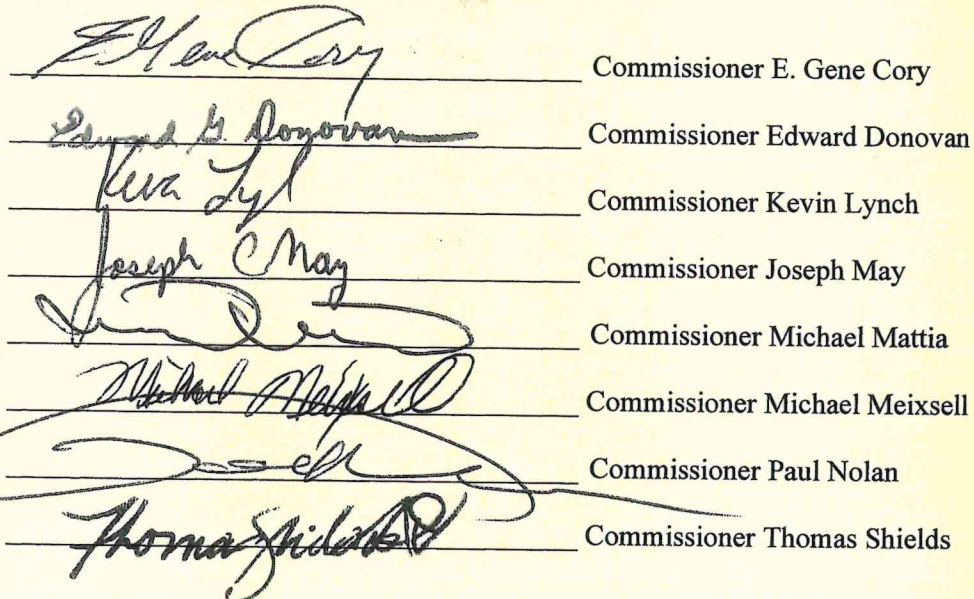 E Gene Cory Commissioner E. Gene Cory
Edward G. Donovan Commissioner Edward Donovan
Commissioner Kevin Lynch
Joseph C May Commissioner Joseph May
Commissioner Michael Mattia
Michael Meixsell Commissioner Michael Meixsell
Commissioner Paul Nolan
Thomas Shields Commissioner Thomas Shields